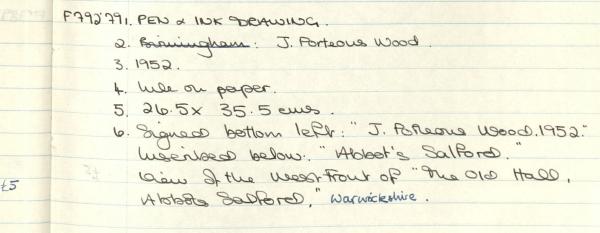 F792'791. PEN & INK DRAWING.
2. Birmingham: J. Porteous Wood.
3. 1952.
4. Ink on paper.
5. 26.5 x 35.5 cms.
6. Signed bottom left: "J. Porteous Wood. 1952."
Inscribed below: "Abbot's Salford."
View of the West front of "The Old Hall,
£5
Abbots Salford," Warwickshire.